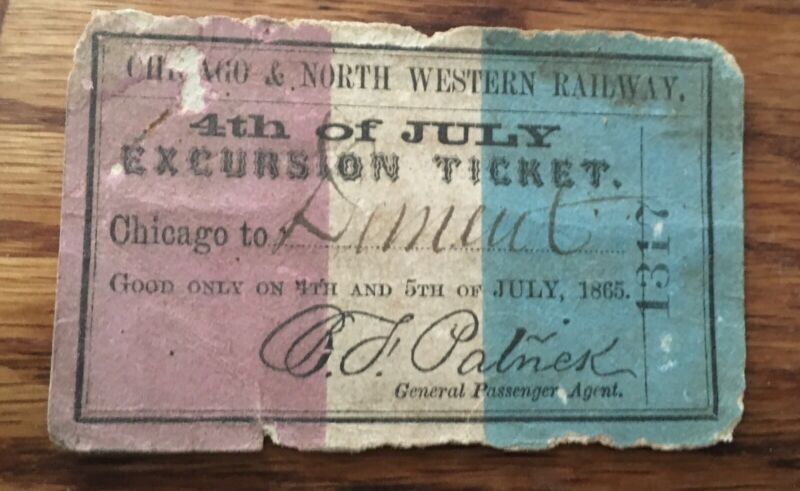 CHICAGO & NORTH WESTERN RAILWAY.
4th of JULY
EXCURSION TICKET.
Chicago to Dement
GOOD ONLY ON 4TH AND 5TH OF JULY, 1865.
B. F. Patrick
General Passenger Agent.
1317